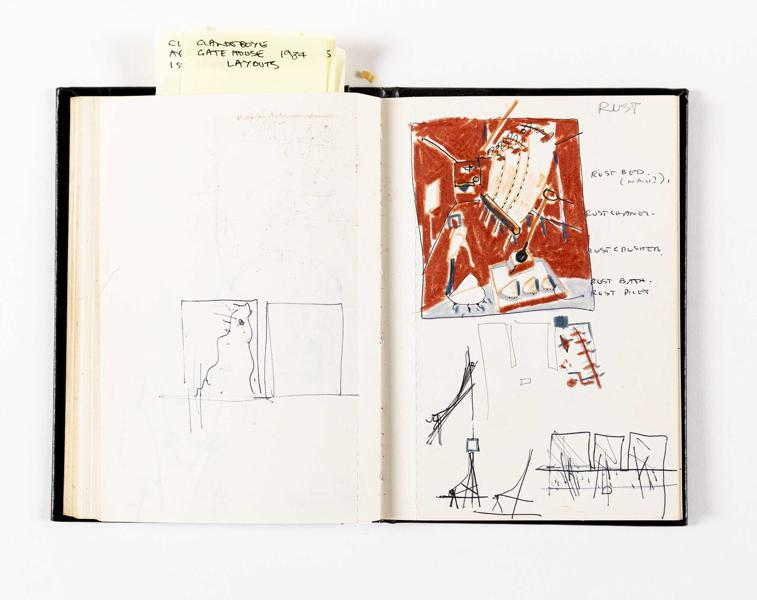 CL CLANDEBOYE
AY GATE HOUSE 1984 S
1S LAYOUTS
RUST
RUST BED.
(NAILS),
RUST CHANEY.
RUST CRUSHER,
RUST BATH.
RUST PILES